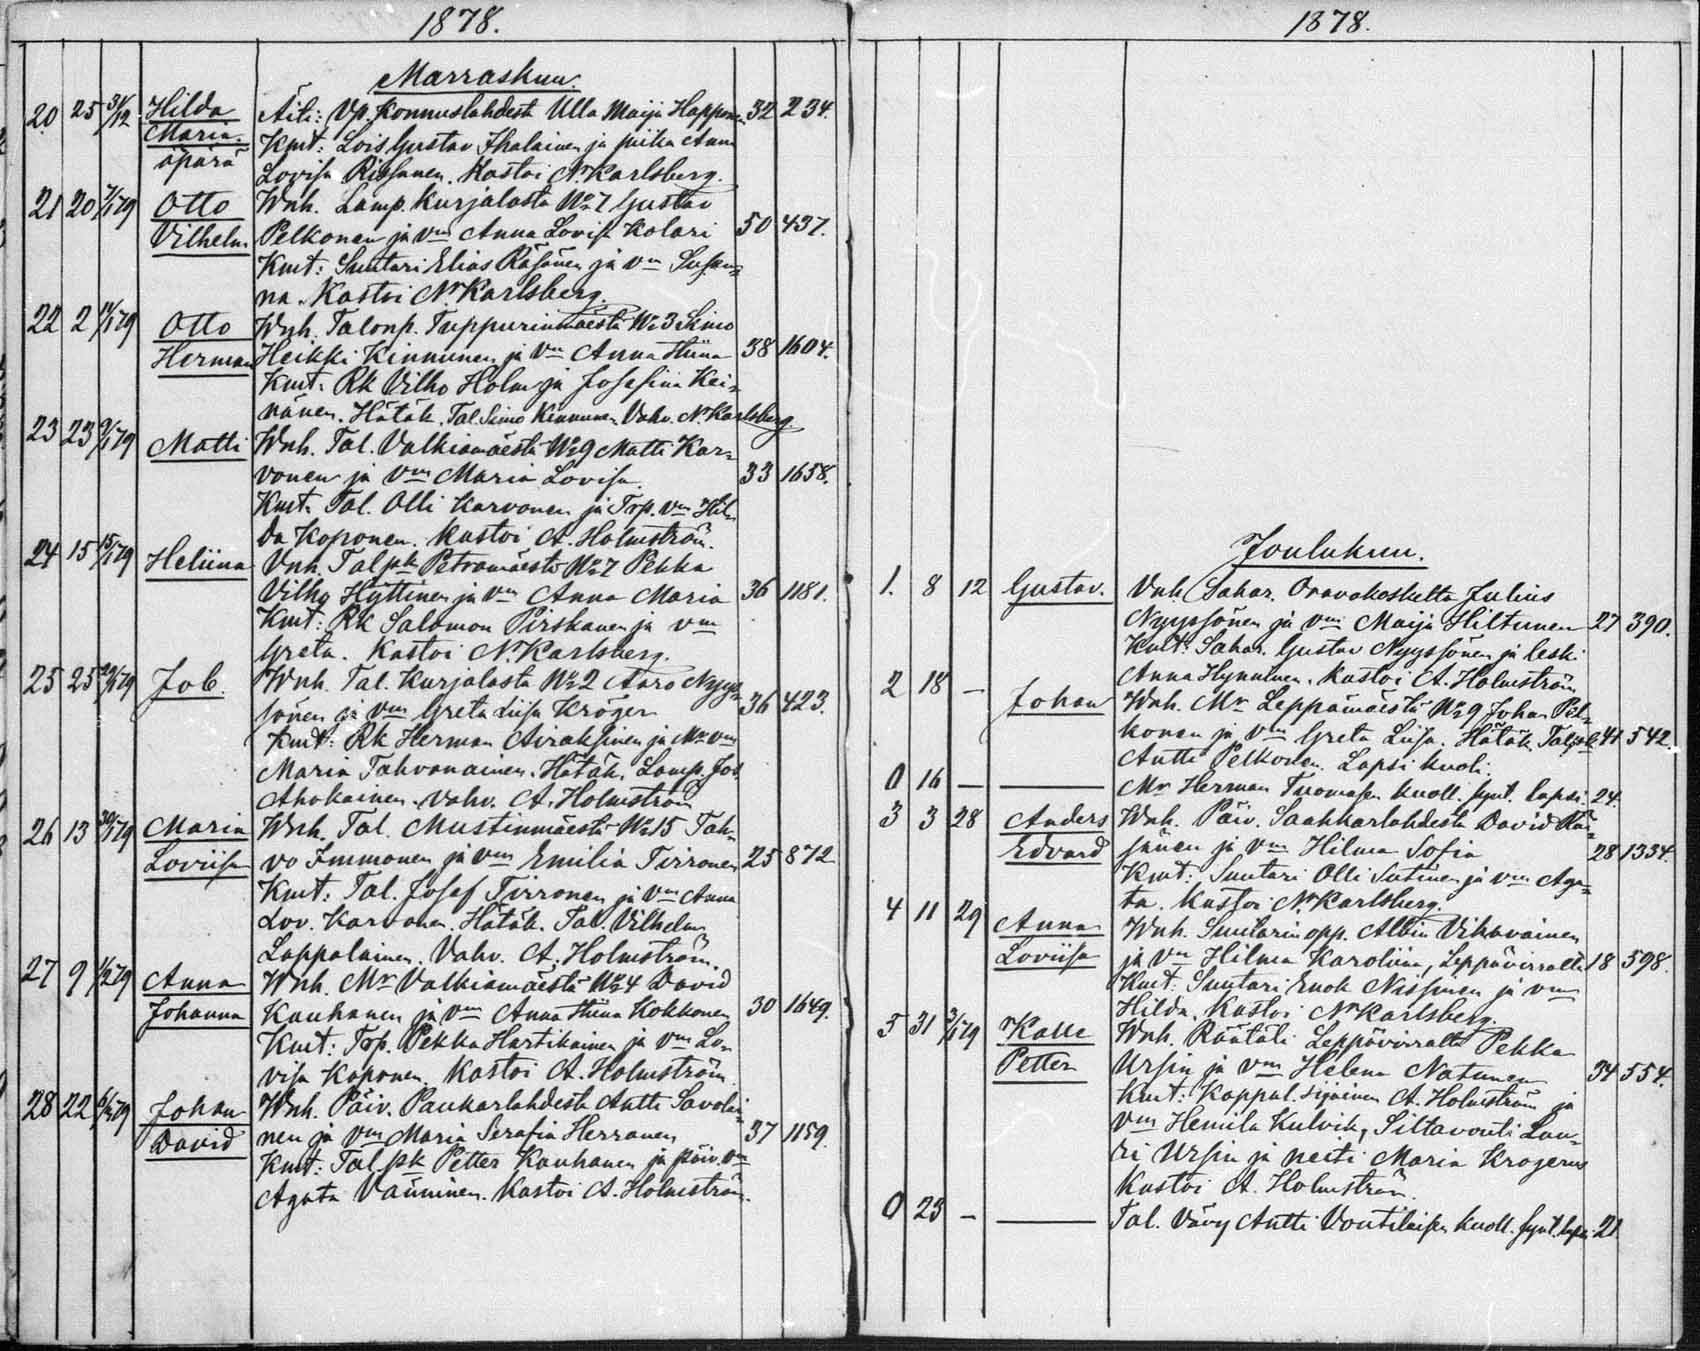 1878.
Marraskuu.
20 25 31/12 Hilda Äiti: Vp. Konnuslahdesta Ulla Maija Happonen 32 234.
Maria Kmt: Lois Gustav Ihalainen ja piika Anna
äpärä Lovisa Rissanen. Kastoi N. Karlsberg.
21 20 7/1 79 Otto Wnh. Lamp. Kurjalasta No 7 Gustav
Vilhelm Pelkonen ja vm Anna Lovisa Kolari 50 437.
Kmt: Suutari Elias Räsänen ja vm Susan=
na. Kastoi N. Karlsberg.
22 2 /1 79 Otto Wnh. Talonp. Tuppurinmäestä No 3 Simo
Herman Heikki Kinnunen ja vm Anna Stiina 38 1604.
Kmt: Rk Vilho Holm ja Josefina Kei=
nänen. Hätäk. Tal. Simo Kinnunen Vahv. N. Karlsberg
23 23 9/1 79 Matti Wnh. Tal. Valkiamäestä No 9 Matti Kar=
vonen ja vm Maria Lovisa. 33 1658.
Kmt. Tal. Olli Karvonen ja Trp. vm Hil=
da Koponen. Kastoi A. Holmström.
24 15 15/1 79 Heliina Vnh. Talpk Petromäestä No 7 Pekka
Vilho Hyttinen ja vm Anna Maria 36 1181.
Kmt: Rk Salomon Pirskanen ja vm
Greta. Kastoi N. Karlsberg.
25 25 /1 79 Job. Wnh. Tal. Kurjalasta No 2 Aaro Nyys=
sönen ja vm Greta Liisa Kröger 36 423.
Kmt: Rk Herman Airaksinen ja Mr vm
Maria Tahvanainen. Hätäk. Lamp. Jos.
Ahokainen. Vahv. A. Holmström
26 13 30/1 79 Maria Wnh. Tal. Mustinmäestä No 15 Tah=
Loviisa vo Immonen ja vm Emilia Tirronen 25 872
Kmt: Tal. Josef Tirronen ja vm Anna
Lov. Karvonen. Hätäk. Tal. Vilhelm
Lappalainen. Vahv. A. Holmström.
27 9 1/2 79 Anna Wnh. Mr Valkiamäestä No 4 David
Johanna Kauhanen ja vm Anna Stiina Kokkonen 30 1649.
Kmt: Trp. Pekka Hartikainen ja vm Lo=
visa Koponen. Kastoi A. Holmström
28 22 6/2 79 Johan Wnh. Päiv. Paukarlahdesta Antti Savolai=
David nen ja vm Maria Serafia Herranen 37 1159.
Kmt: Talpk Petter Kauhanen ja päiv. vm
Agata Vänninen. Kastoi A. Holmström.
1878.
Joulukuu.
1. 8 12 Gustav. Vnh. Sahar. Oravakoskelta Julius
Nyyssönen ja vm Maija Hiltunen 27 390.
Kmt: Sahar. Gustav Nyyssönen ja leski
Anna Hynninen. Kastoi A. Holmström
2 18 – Johan Wnh. Mr Leppämäestä No 9 Johan Pel=
konen ja vm Greta Liisa. Hätäk. Talpk 41 542.
Antti Pelkonen. Lapsi kuoli.
0 16 – — Mr Herman Tuomasen kuoll. synt. lapsi. 24.
3 3 28 Anders Wnh. Päiv. Saahkarlahdesta David Rä=
Edvard sänen ja vm Hilma Sofia 28 1334.
Kmt: Suutari Olli Sutinen ja vm Aga=
ta. Kastoi N. Karlsberg.
4 11 29 Anna Wnh. Suutarin opp. Albin Vihavainen
Loviisa ja vm Hilma Karoliina, Leppävirralta 18 598.
Kmt: Suutari Enok Nissinen ja vm
Hilda. Kastoi N. Karlsberg.
5 31 3/1 79 Kalle Wnh. Räätäli Leppävirralta Pekka
Petter Ursin ja vm Helena Natunen 34 554.
Kmt: Kappal. sijainen A. Holmström ja
vm Hemila Kulvik, Siltavouti Lau=
ri Ursin ja neiti Maria Krogerus
Kastoi A. Holmström.
0 23 – — Tal. Vävy Antti Voutilaisen kuoll. synt. lapsi 21